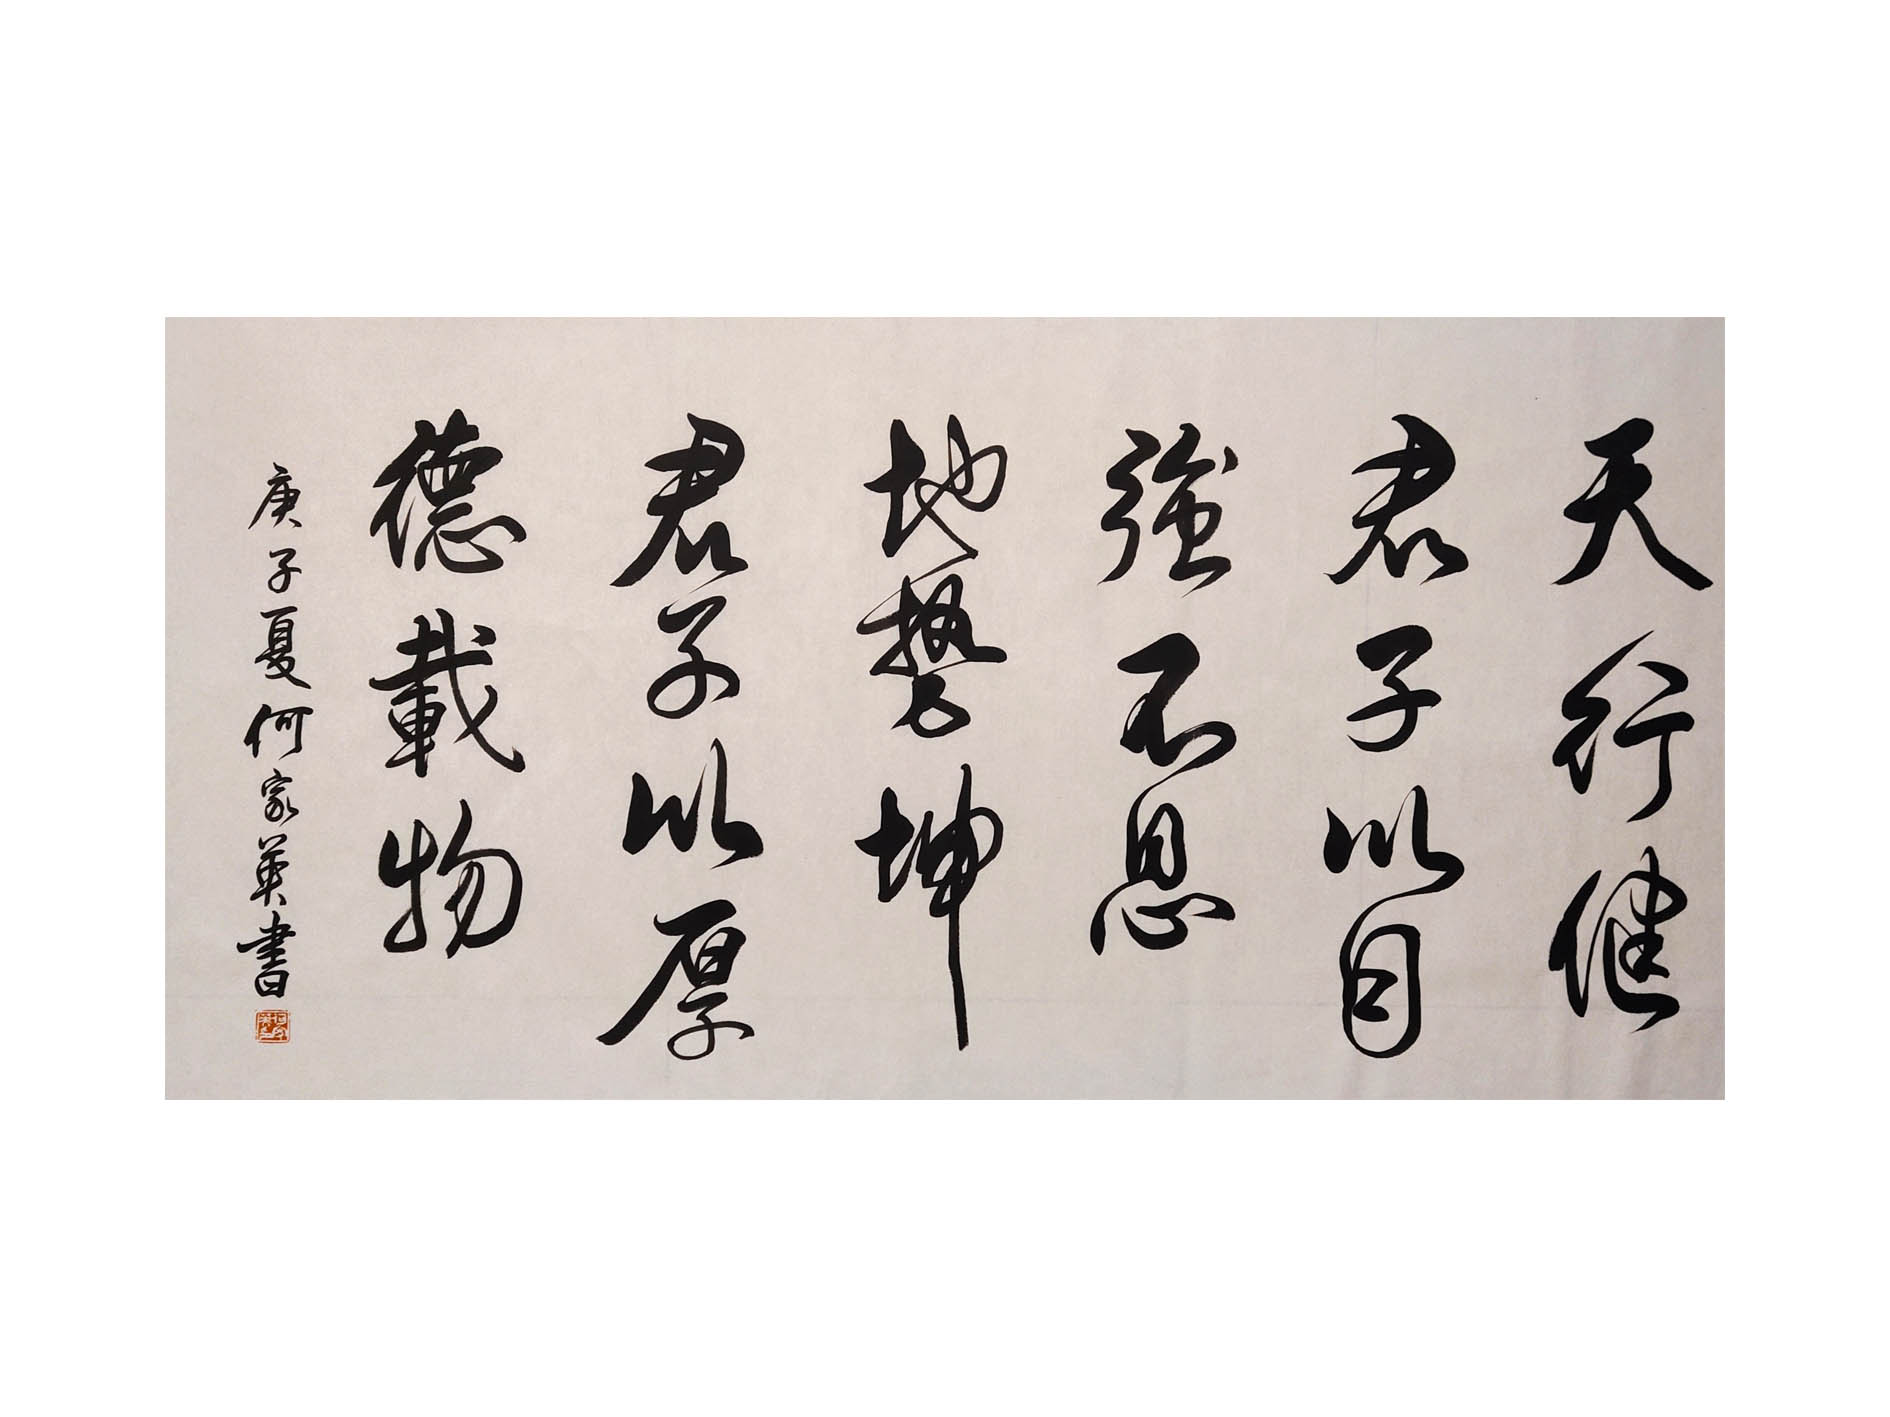 天行健
君子以自
強不息
地勢坤
君子以厚
德載物
庚子夏何家英書